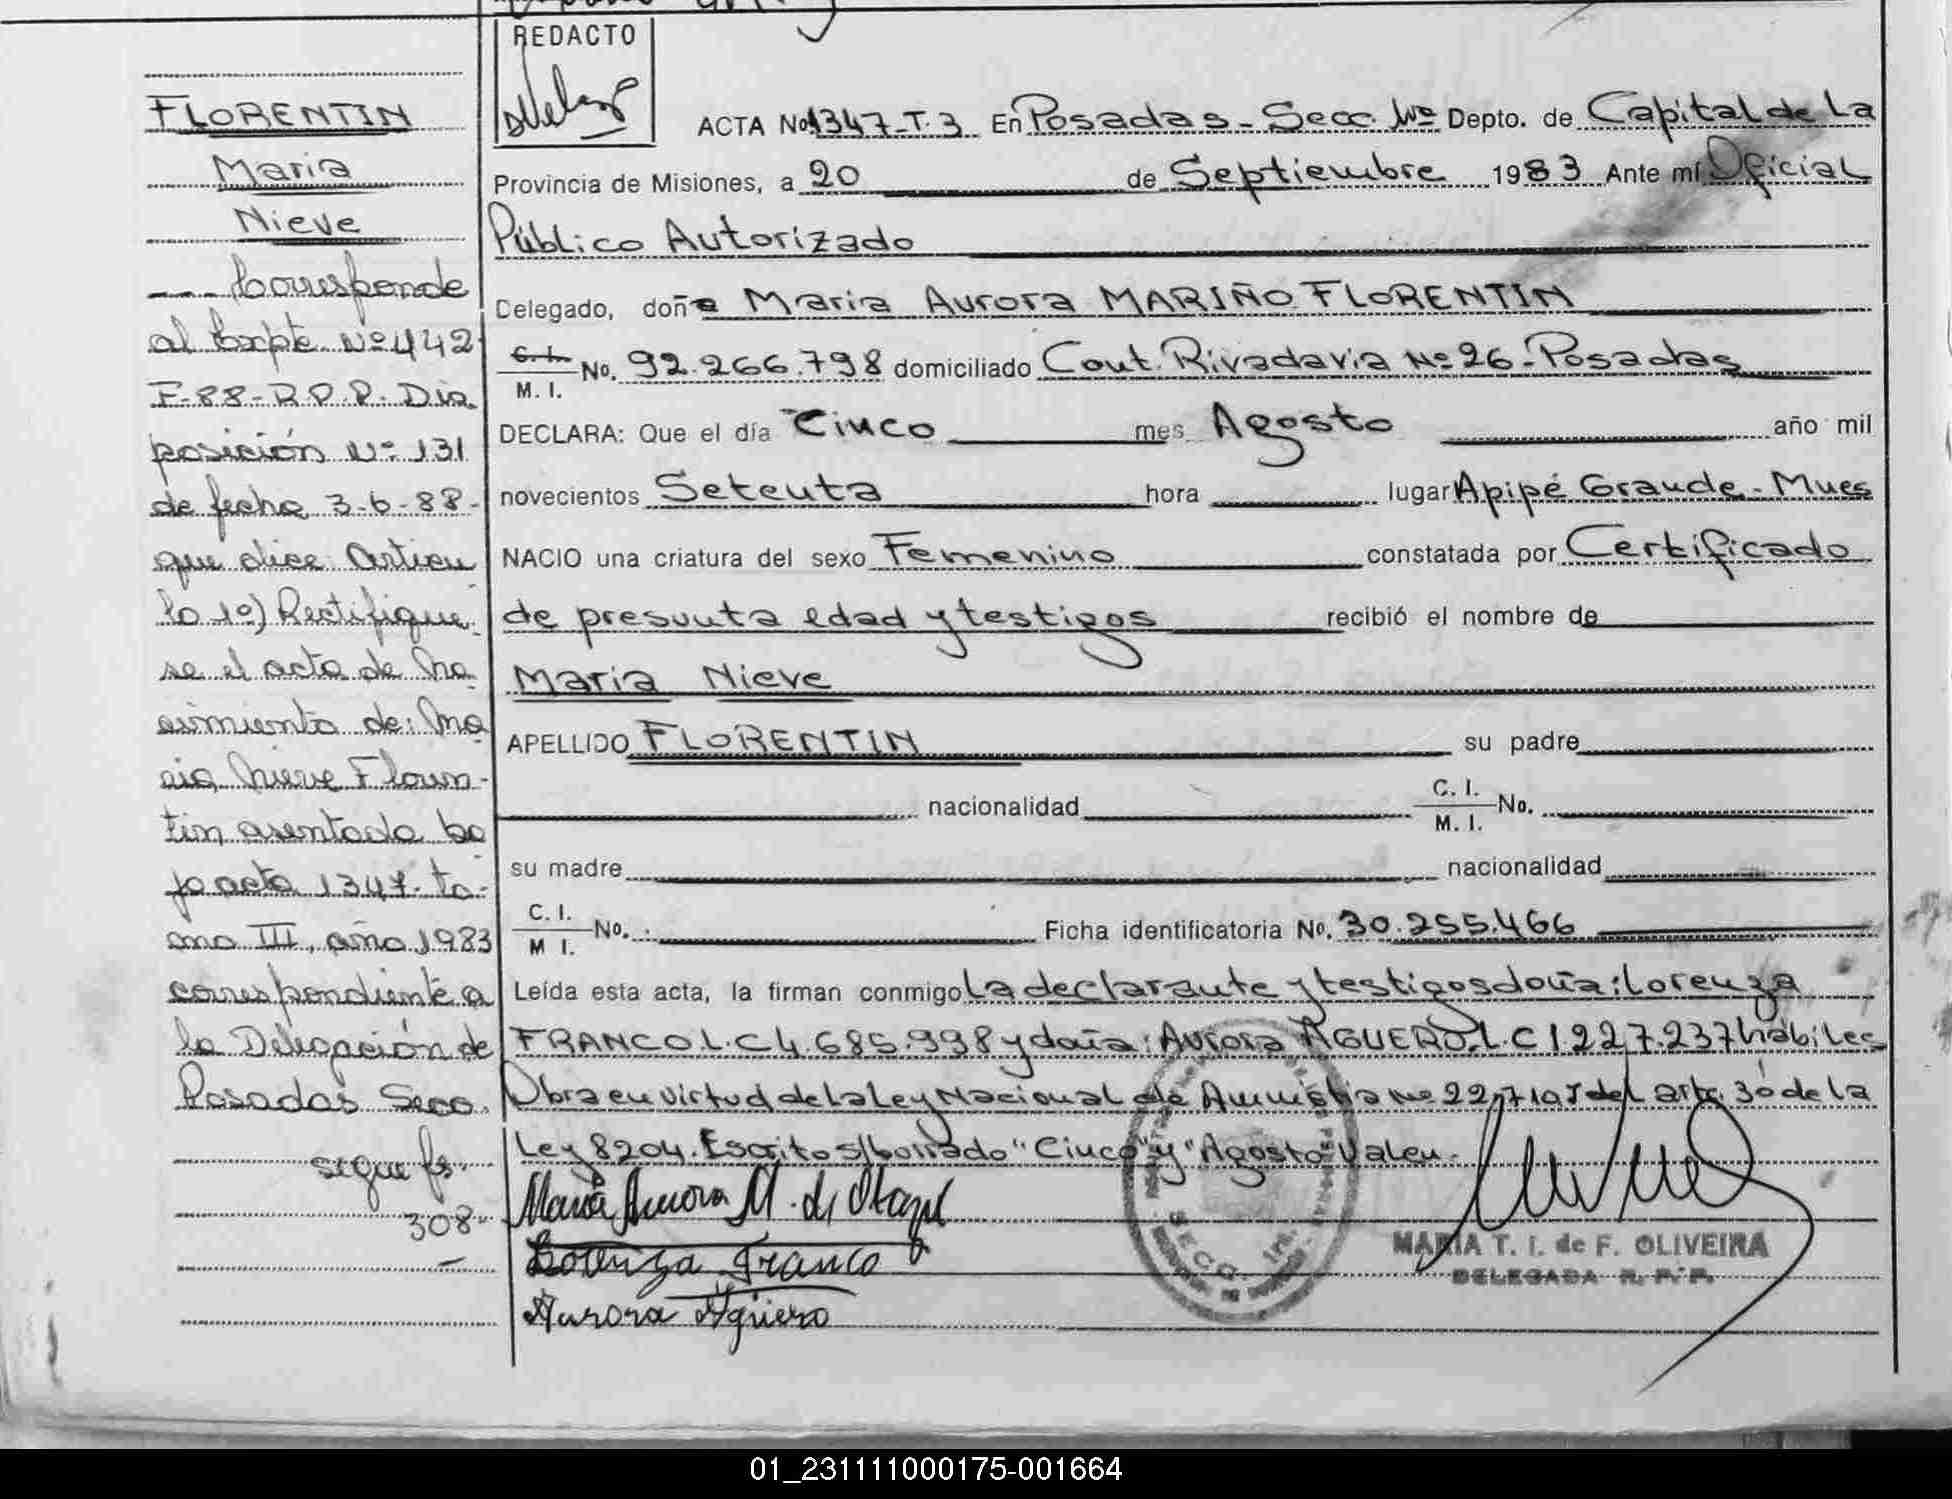 REDACTO
FLORENTIN
Maria
Nieve
--- Corresponde
al Expte Nº 442
F-88-R.P.P. Dis
posición Nº 131
de fecha 3-6-88-
que dice: Articu
lo 1º) Rectifique
se el acta de na
cimiento de: Ma
ria Nieve Floren-
tin asentada ba
jo acta 1347- to-
mo III, año 1983
correspondiente a
la Delegación de
Posadas Secc.
sigue fs.
308-
ACTA Nº 1347-T.3 En Posadas - Secc. Depto. de Capital de La
Provincia de Misiones, a 20 de Septiembre 1983 Ante mí Oficial
Público Autorizado
Delegado, doña Maria Aurora MARIÑO FLORENTIN
C. I. M. I. No. 92.266.798 domiciliado Cont. Rivadavia Nº 26 - Posadas
DECLARA: Que el día Cinco mes Agosto año mil
novecientos Setenta hora lugar Apipé Grande -
NACIO una criatura del sexo Femenino constatada por Certificado
de presunta edad y testigos recibió el nombre de
Maria Nieve
APELLIDO FLORENTIN su padre
nacionalidad C. I. M. I. No.
su madre nacionalidad
C. I. M I. No. Ficha identificatoria No. 30.255.466
Leída esta acta, la firman conmigo La declarante y testigos doña: Lorenza
FRANCO L.C 4.685.998 y doña: Aurora AGUERO L.C 1.227.237 hábiles
Obra en virtud de la Ley Nacional de Amnistia Nº 22.710 del art. 30 de la
Ley 8204. Escrito s/borrado "Cinco" y "Agosto" Valen.
Maria Aurora M. de
Lorenza Franco
Aurora Agüero
MARIA T. I. de F. OLIVEIRA
DELEGADA R. P. P.
SECC. 1ra.
01_231111000175-001664